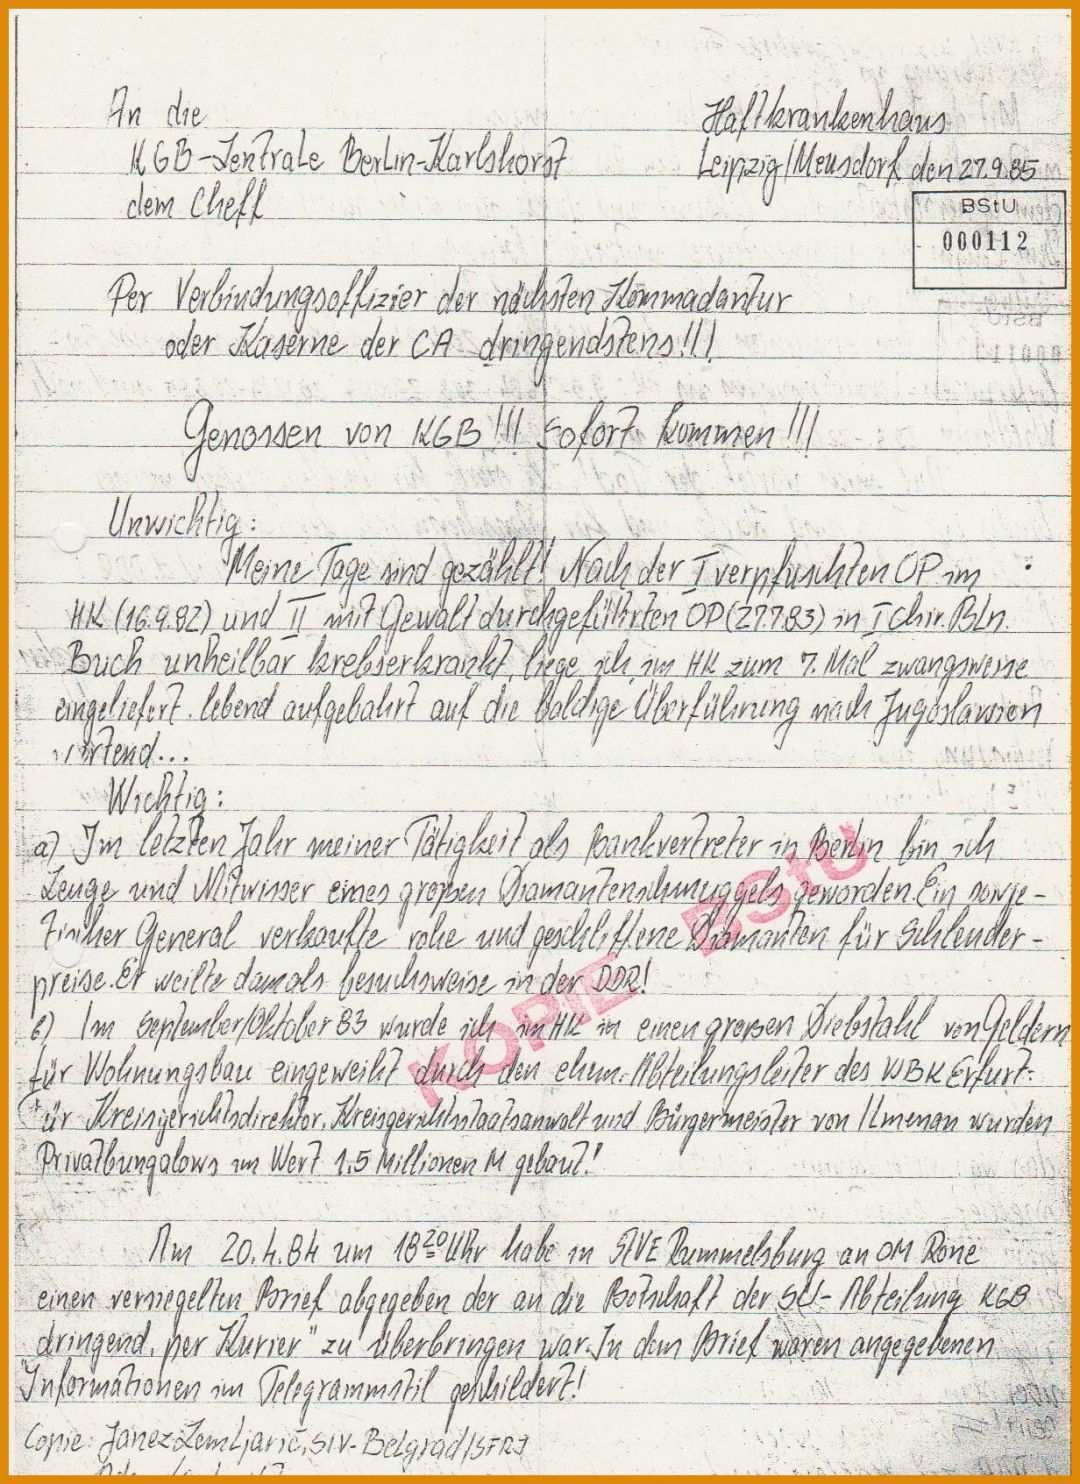 An die
KGB-Zentrale Berlin-Karlshorst
dem Cheff
Haftkrankenhaus
Leipzig/Meusdorf den 27.9.85
BStU
000112
Per Verbindungsoffizier der nächsten Kommadantur
oder Kaserne der CA dringendstens!!!
Genossen von KGB!!! Sofort kommen!!!
Unwichtig:
Meine Tage sind gezählt! Nach der I verpfuschten OP im
HK (16.9.82) und II mit Gewalt durchgeführten OP (27.7.83) in I Chir. Bln.
Buch unheilbar krebserkrankt, liege ich im HK zum 7. Mal zwangsweise
eingeliefert. lebend aufgebahrt auf die baldige Überführung nach Jugoslawien
wartend...
Wichtig:
a) Im letzten Jahr meiner Tätigkeit als Bankvertreter in Berlin bin ich
Zeuge und Mitwisser eines großen Diamantenschmuggels geworden. Ein sowje-
tischer General verkaufte rohe und geschliffene Diamanten für Schleuder-
preise. Er weilte damals besuchsweise in der DDR!
б) Im September/Oktober 83 wurde ich im HK in einen großen Diebstahl von Geldern
für Wohnungsbau eingeweiht durch den ehem. Abteilungsleiter des WBK Erfurt:
für Kreisgerichtsdirektor, Kreisgerichtsstaatsanwalt und Bürgermeister von Ilmenau wurden
Privatbungalows im Wert 1,5 Millionen M gebaut!
KOPIE BStU
Am 20.4.84 um 18 20 Uhr habe in StVE Rummelsburg an OM Rone
einen versiegelten Brief abgegeben der an die Botschaft der SU-Abteilung KGB
dringend "per Kurier" zu überbringen war. In dem Brief waren angegebenen
Informationen im Telegrammstil geschildert!
Copie: Janez Zemljarič, SIV-Belgrad/SFRJ